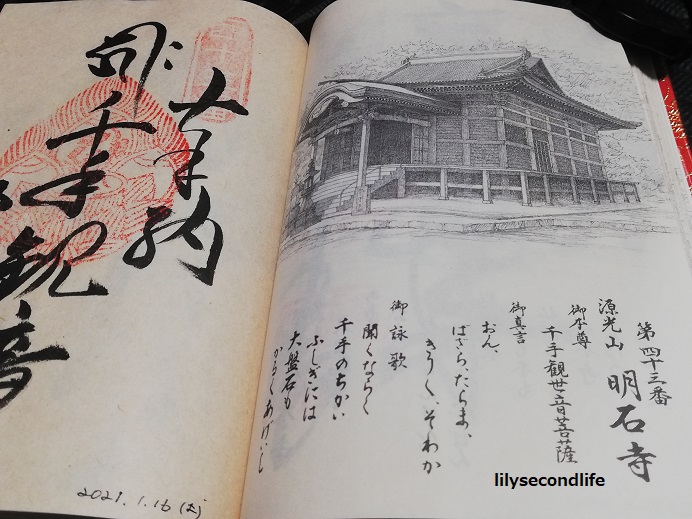 第四十三番
源光山 明石寺
御本尊
千手観世音菩薩
御真言
おん、
ばさら、たらま、
きりく、そわか
御詠歌
聞くならく
千手のちかい
ふしぎには
大盤石も
かろくあげいし
奉納
千手観音
2021.1.16 (土)
lilysecondlife